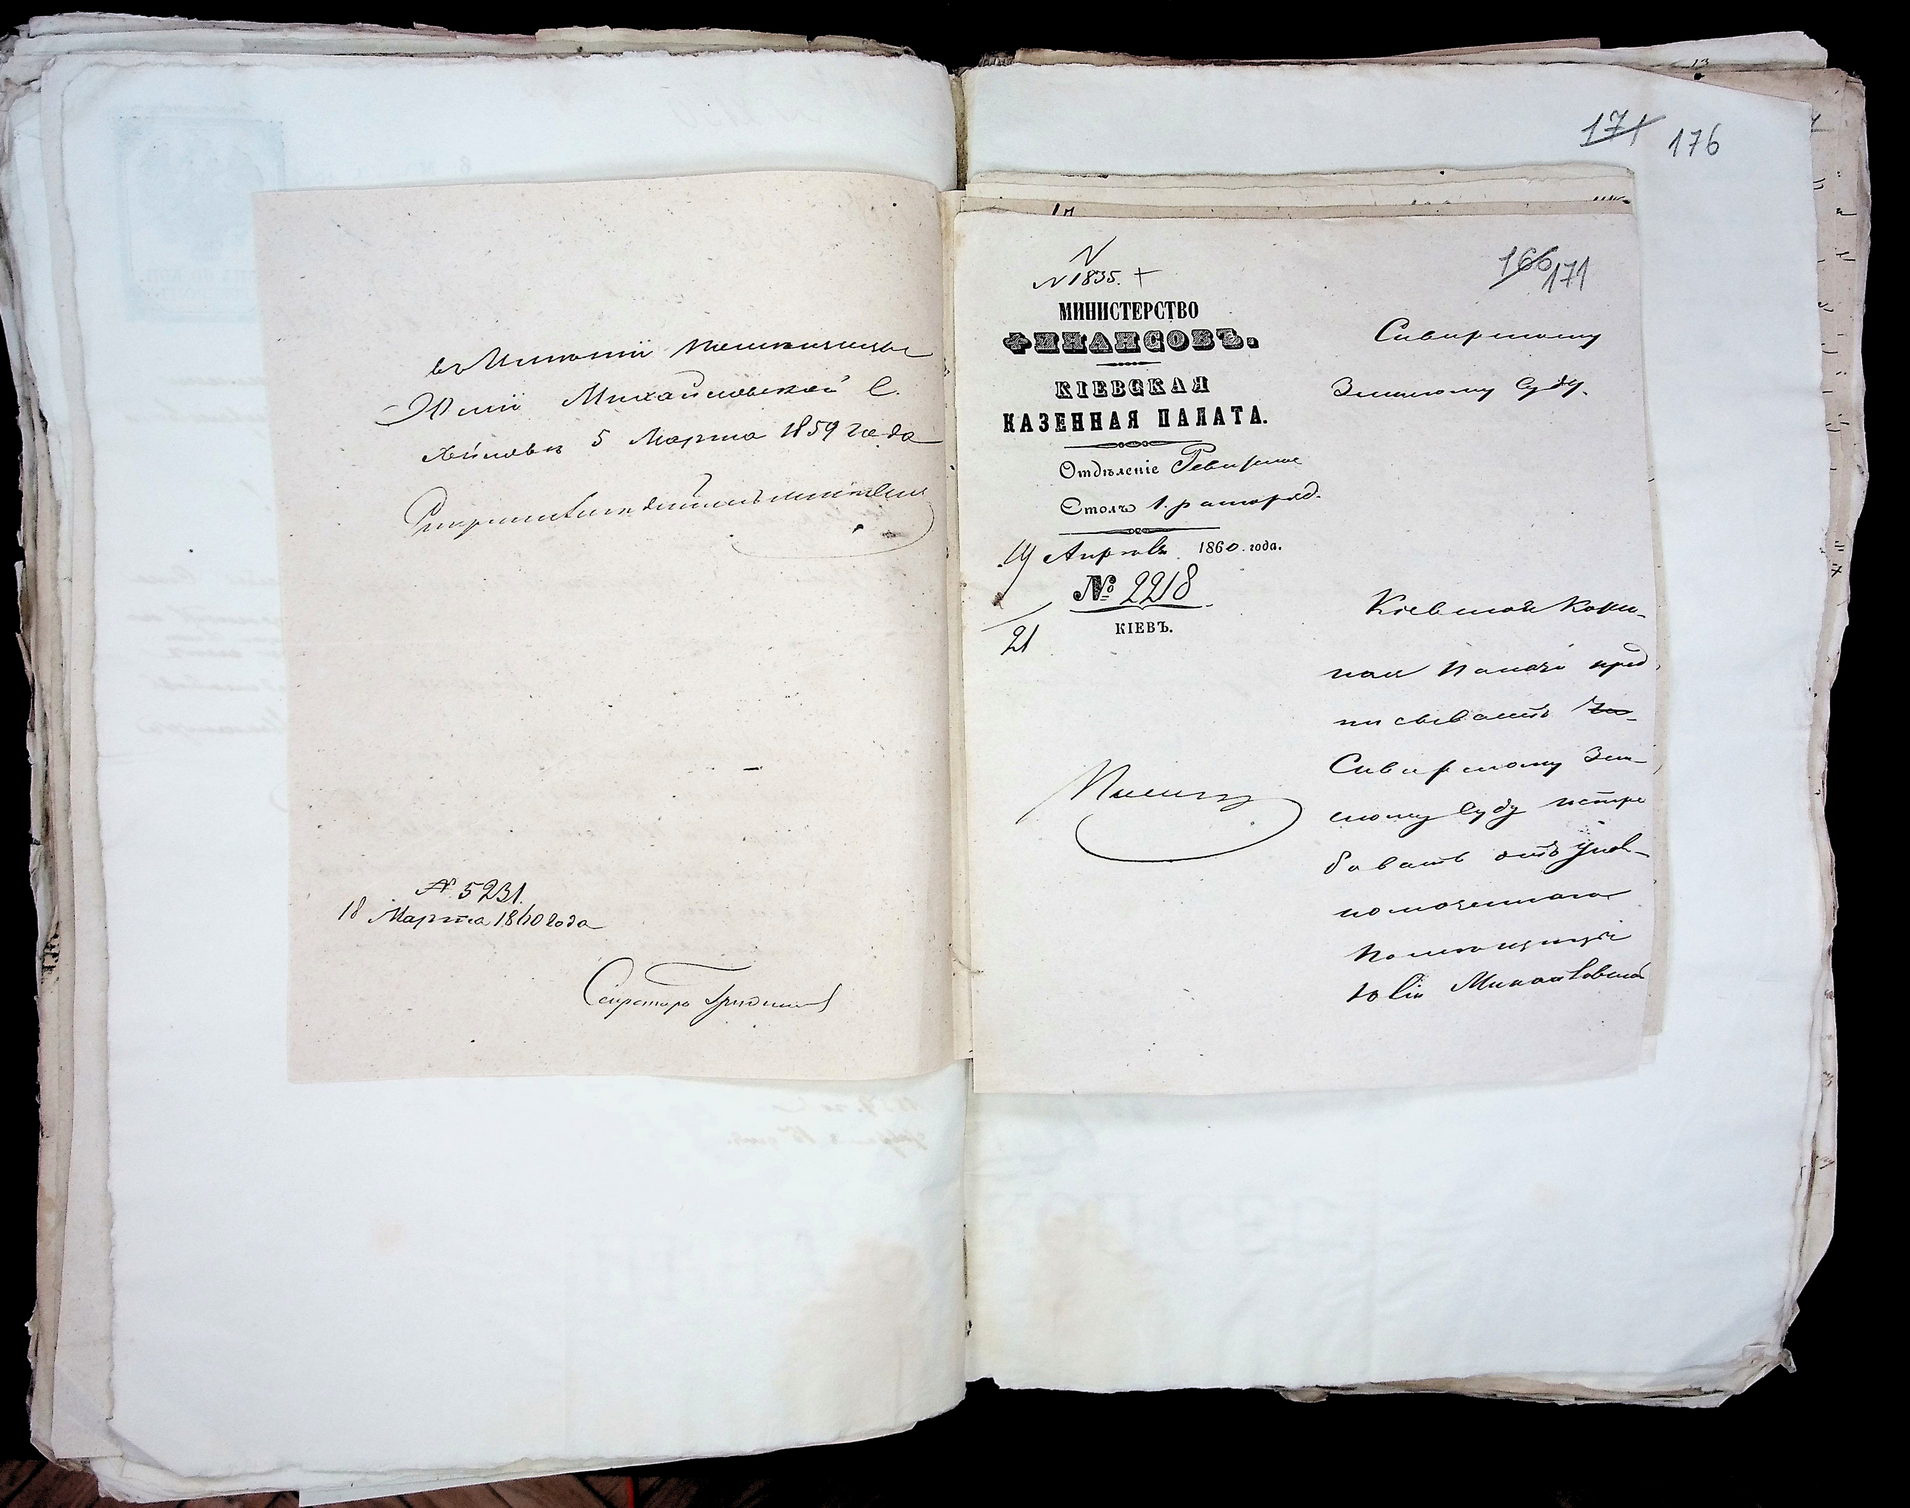 въ имѣніи помѣщицы
Юліи Михайловской С.
5 Марта 1859 года
№ 5231.
18 Марта 1860 года
Секретарь
171 176
N
N 1835. +
166 171
МИНИСТЕРСТВО
ФИНАНСОВЪ.
КІЕВСКАЯ
КАЗЕННАЯ ПАЛАТА.
Отдѣленіе Ревизское
Столъ 1.
19 Апрѣля 1860 года.
№ 2218
КІЕВЪ.
21
Сквирскому
Земскому Суду.
Кіевская Казен-
ная Палата пред
писываетъ
Сквирскому Зем-
скому Суду истре
бовать отъ упол-
номоченнаго
Помѣщицы
Юліи Михайловской